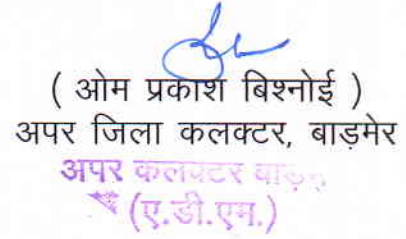 ( ओम प्रकाश बिश्नोई )
अपर जिला कलक्टर, बाड़मेर
अपर कलक्टर
(ए.डी.एम.)